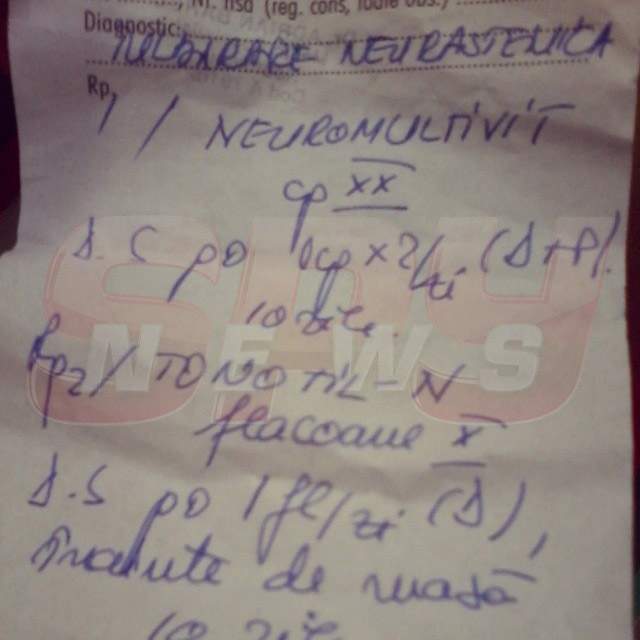 Nr. fisa (reg. cons, foaie obs.)
Diagnostic:
TULBURARE NEURASTENICA
Rp,
1 / NEUROMULTIVIT
cp XX
D.S po 1cp x 2/zi (D+P).
10 zile
Rp2/ TONOTIL-N
flacoane X
D.S po 1 fl/zi (D),
înainte de masă
10 zile
SPY
NEWS